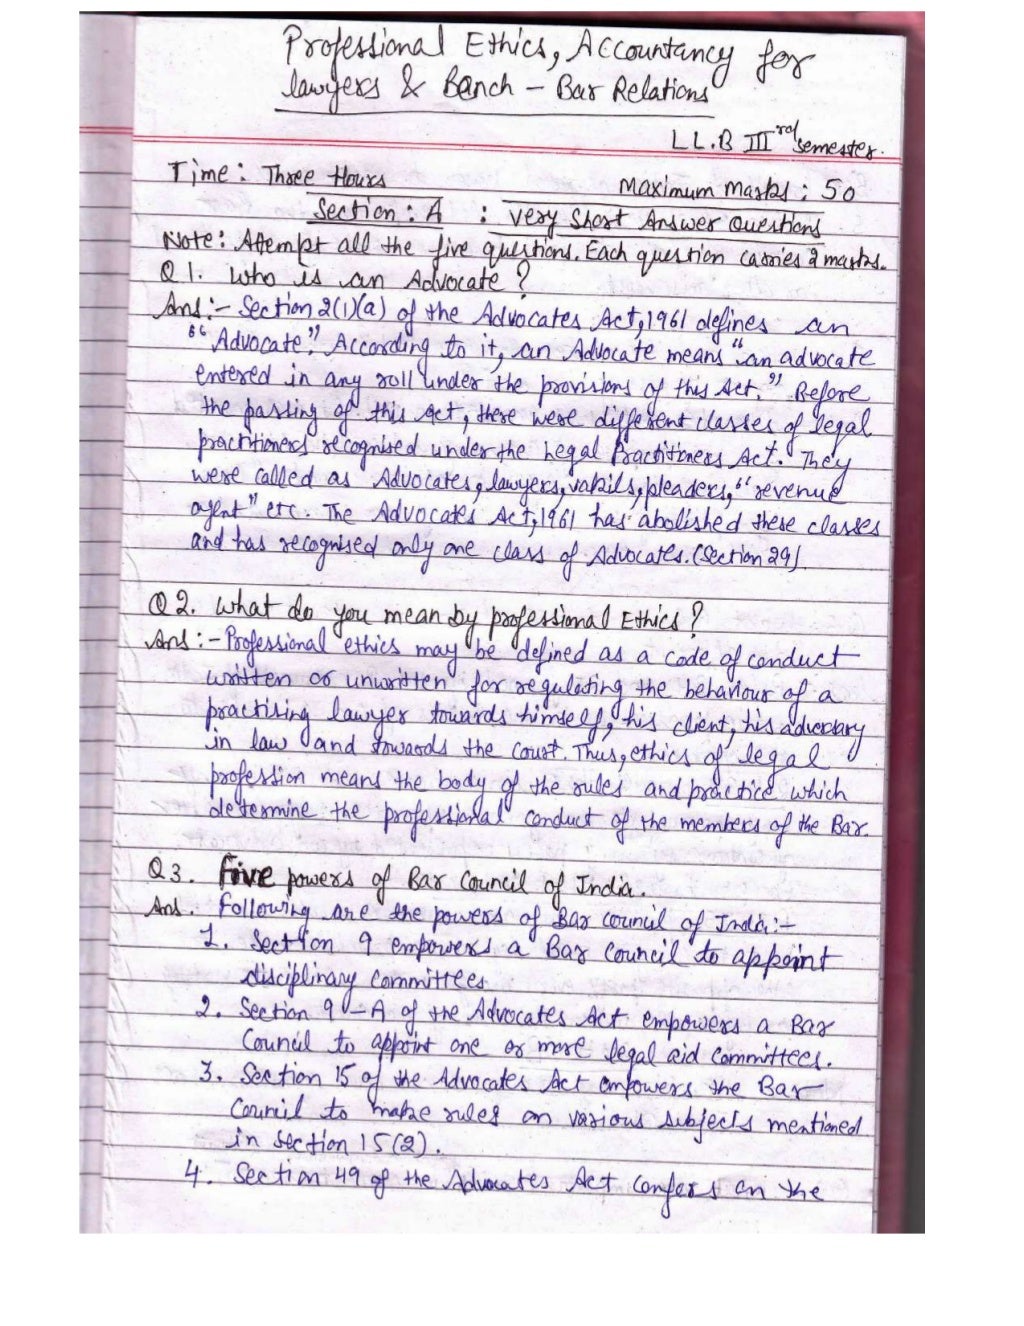 Professional Ethics, Accountancy for
lawyers & Bench - Bar Relations
LL.B IIIrd semester.
Time: Three Hours
Maximum Marks: 50
Section: A : Very Short Answer Questions
Note: Attempt all the five questions. Each question carries 2 marks.
Q 1. Who is an Advocate?
Ans:- Section 2(1)(a) of the Advocates Act, 1961 defines an
"Advocate". According to it, an Advocate means "an advocate
entered in any roll under the provisions of this Act." Before
the passing of this Act, there were different classes of legal
practitioners recognised under the Legal Practitioners Act. They
were called as Advocates, lawyers, vakils, pleaders, "revenue
agent" etc. The Advocates Act, 1961 has abolished these classes
and has recognised only one class of Advocates. (Section 29)
Q 2. What do you mean by professional Ethics?
Ans:- Professional ethics may be defined as a code of conduct
written or unwritten for regulating the behaviour of a
practising lawyer towards himself, his client, his adversary
in law and towards the court. Thus, ethics of legal
profession means the body of the rules and practice which
determine the professional conduct of the members of the Bar.
Q 3. Five powers of Bar Council of India.
Ans. Following are the powers of Bar council of India:-
1. Section 9 empowers a Bar Council to appoint
disciplinary committees
2. Section 9-A of the Advocates Act empowers a Bar
Council to appoint one or more legal aid committees.
3. Section 15 of the Advocates Act empowers the Bar
Council to make rules on various subjects mentioned
in section 15(2).
4. Section 49 of the Advocates Act confers on the